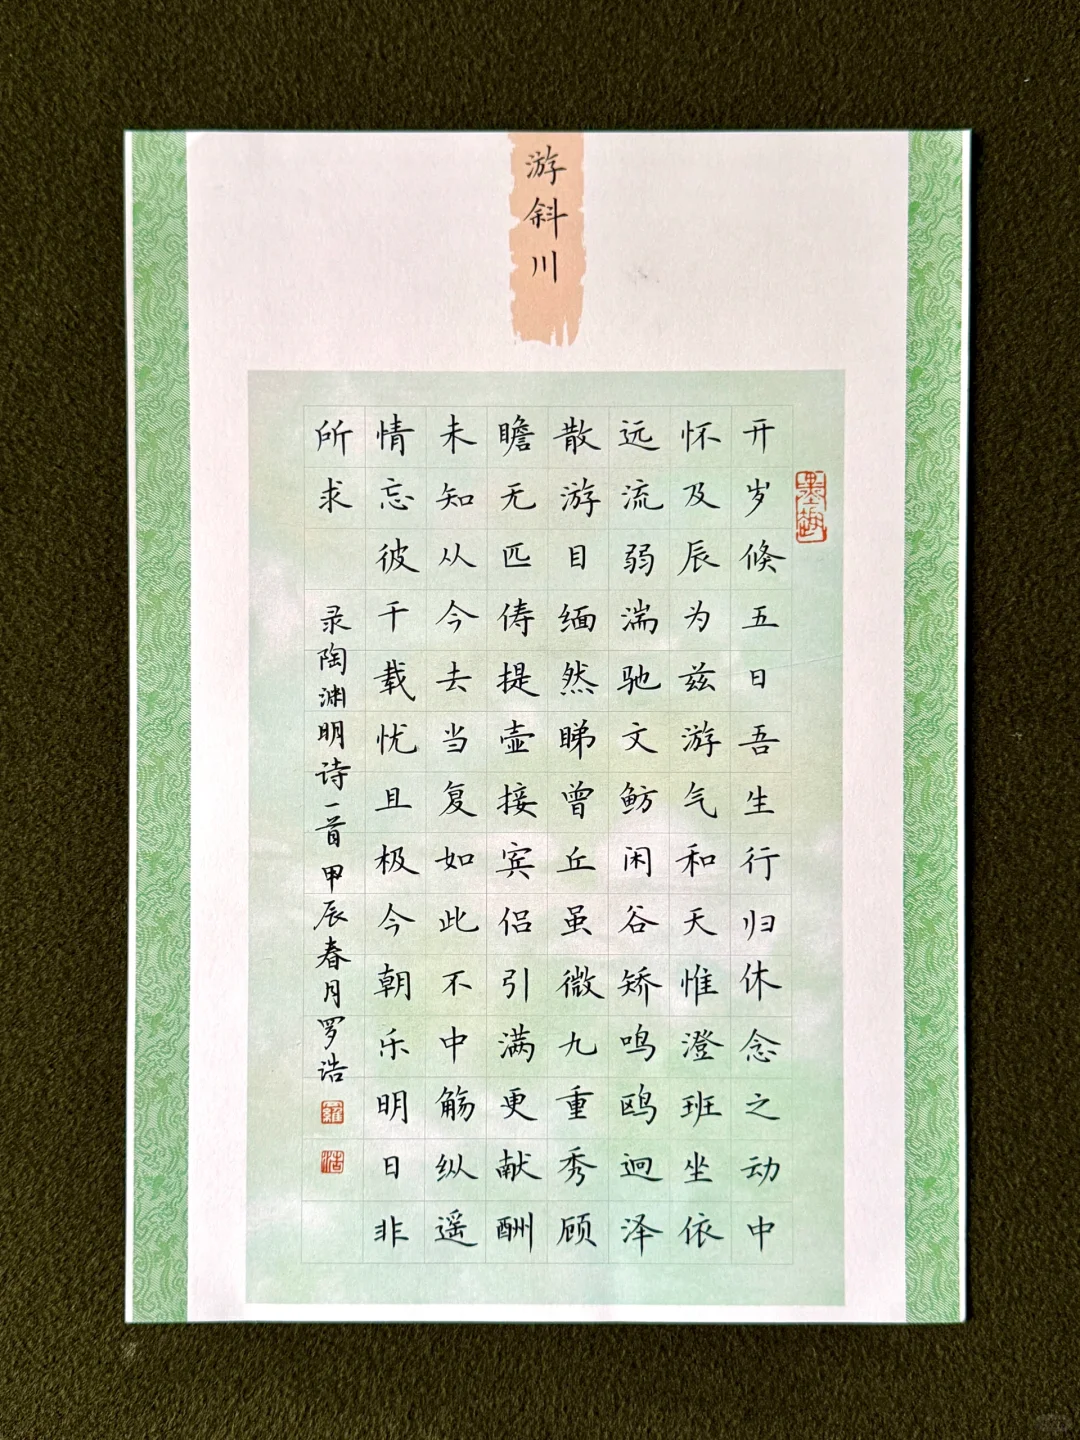 游斜川
开岁倏五日吾生行归休念之动中
怀及辰为兹游气和天惟澄班坐依
远流弱湍驰文鲂闲谷矫鸣鸥迥泽
散游目缅然睇曾丘虽微九重秀顾
瞻无匹俦提壶接宾侣引满更献酬
未知从今去当复如此不中觞纵遥
情忘彼千载忧且极今朝乐明日非
所求
录陶渊明诗一首甲辰春月罗浩
羅
浩